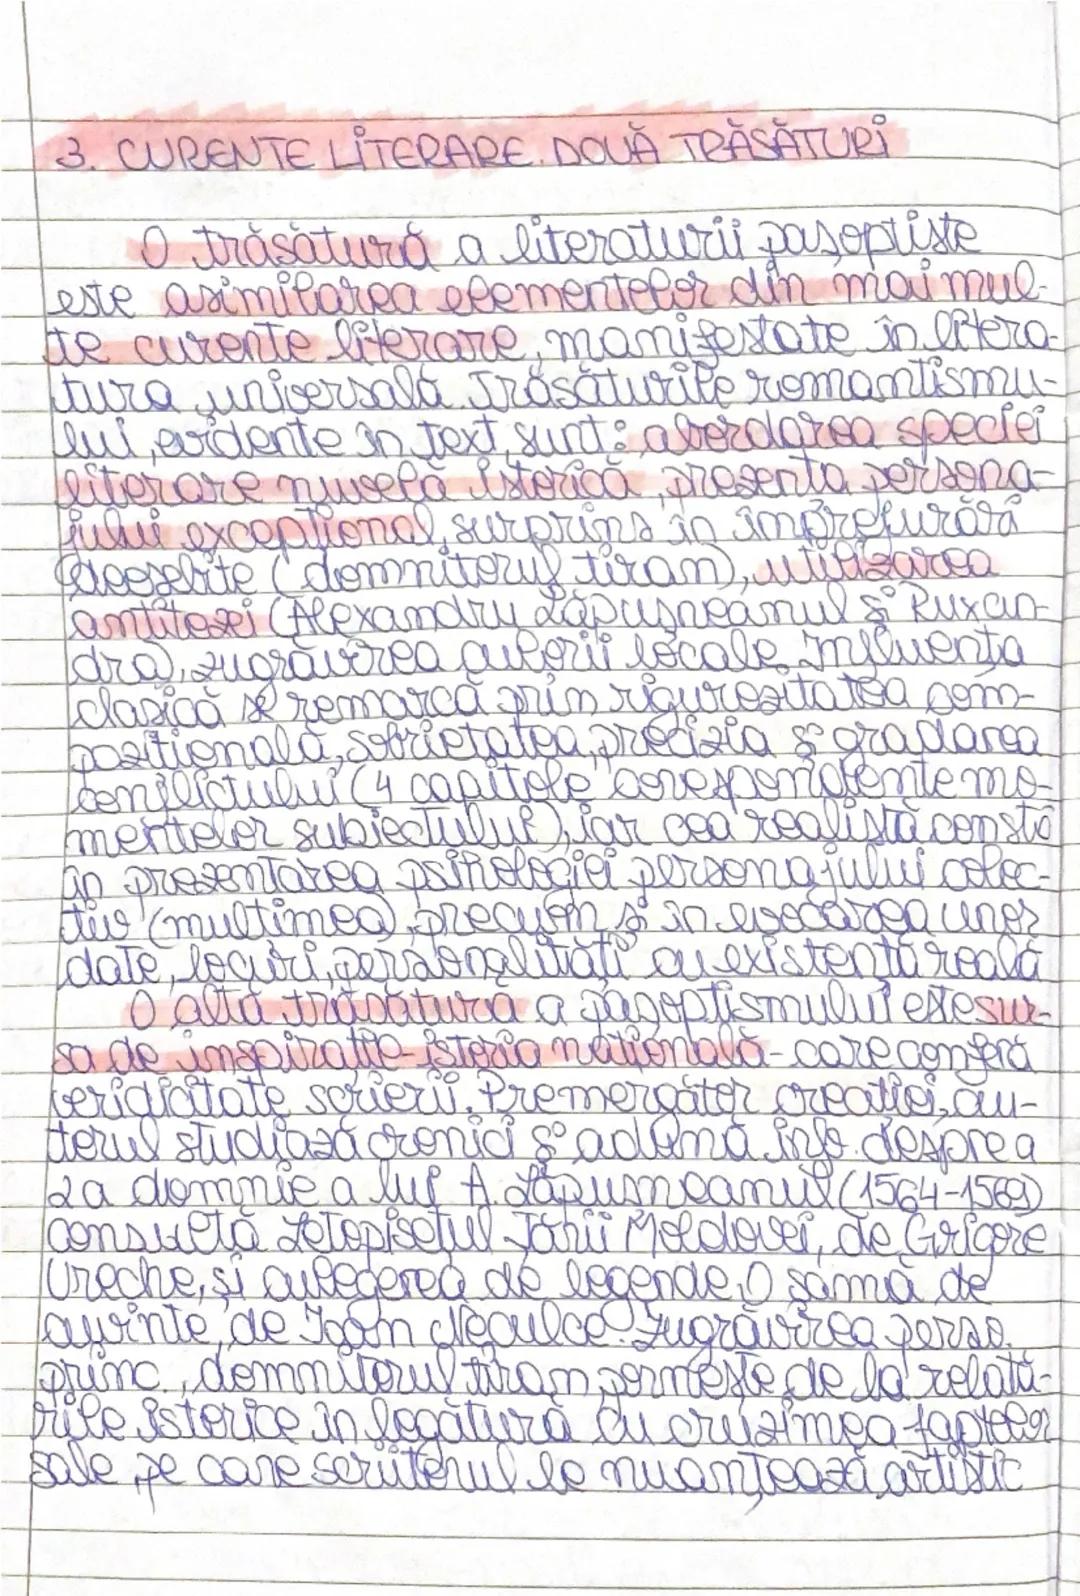 3. CURENTE LITERARE. DOUĂ TRĂSĂTURI
O trăsătură a literaturii pașoptiste
este asimilarea elementelor din mai mul-
te curente literare, manifestate în litera-
tura universală. Trăsăturile romantismu-
lui, evidente în text, sunt: abordarea speciei
literare nuvelă istorică, prezența persona-
jului excepțional, surprins în împrejurări
deosebite (domnitorul tiran), utilizarea
antitezei (Alexandru Lăpușneanul și Ruxan-
dra), zugrăvirea culorii locale. Influența
clasică se remarcă prin rigurozitatea com-
pozițională, sobrietatea, precizia și gradarea
conflictului (4 capitole corespondente mo-
mentelor subiectului), iar cea realistă constă
în prezentarea psihologiei personajului colec-
tiv (mulțimea), precum și în evocarea unor
date, locuri, personalități cu existență reală
O altă trăsătură a pașoptismului este sur-
sa de inspirație-istoria națională-care conferă
veridicitate scrierii. Premergător creației, au-
torul studiază cronici și adună info. despre a
2a domnie a lui A. Lăpușneanul (1564-1569)
consultă Letopisețul Țării Moldovei, de Grigore
Ureche, și culegerea de legende O samă de
cuvinte, de Ioan Neculce. Zugrăvirea perso.
princ., domnitorul tiran pornește de la relată-
rile istorice în legătură cu cruzimea faptelor
sale pe care scriitorul le nuanțează artistic